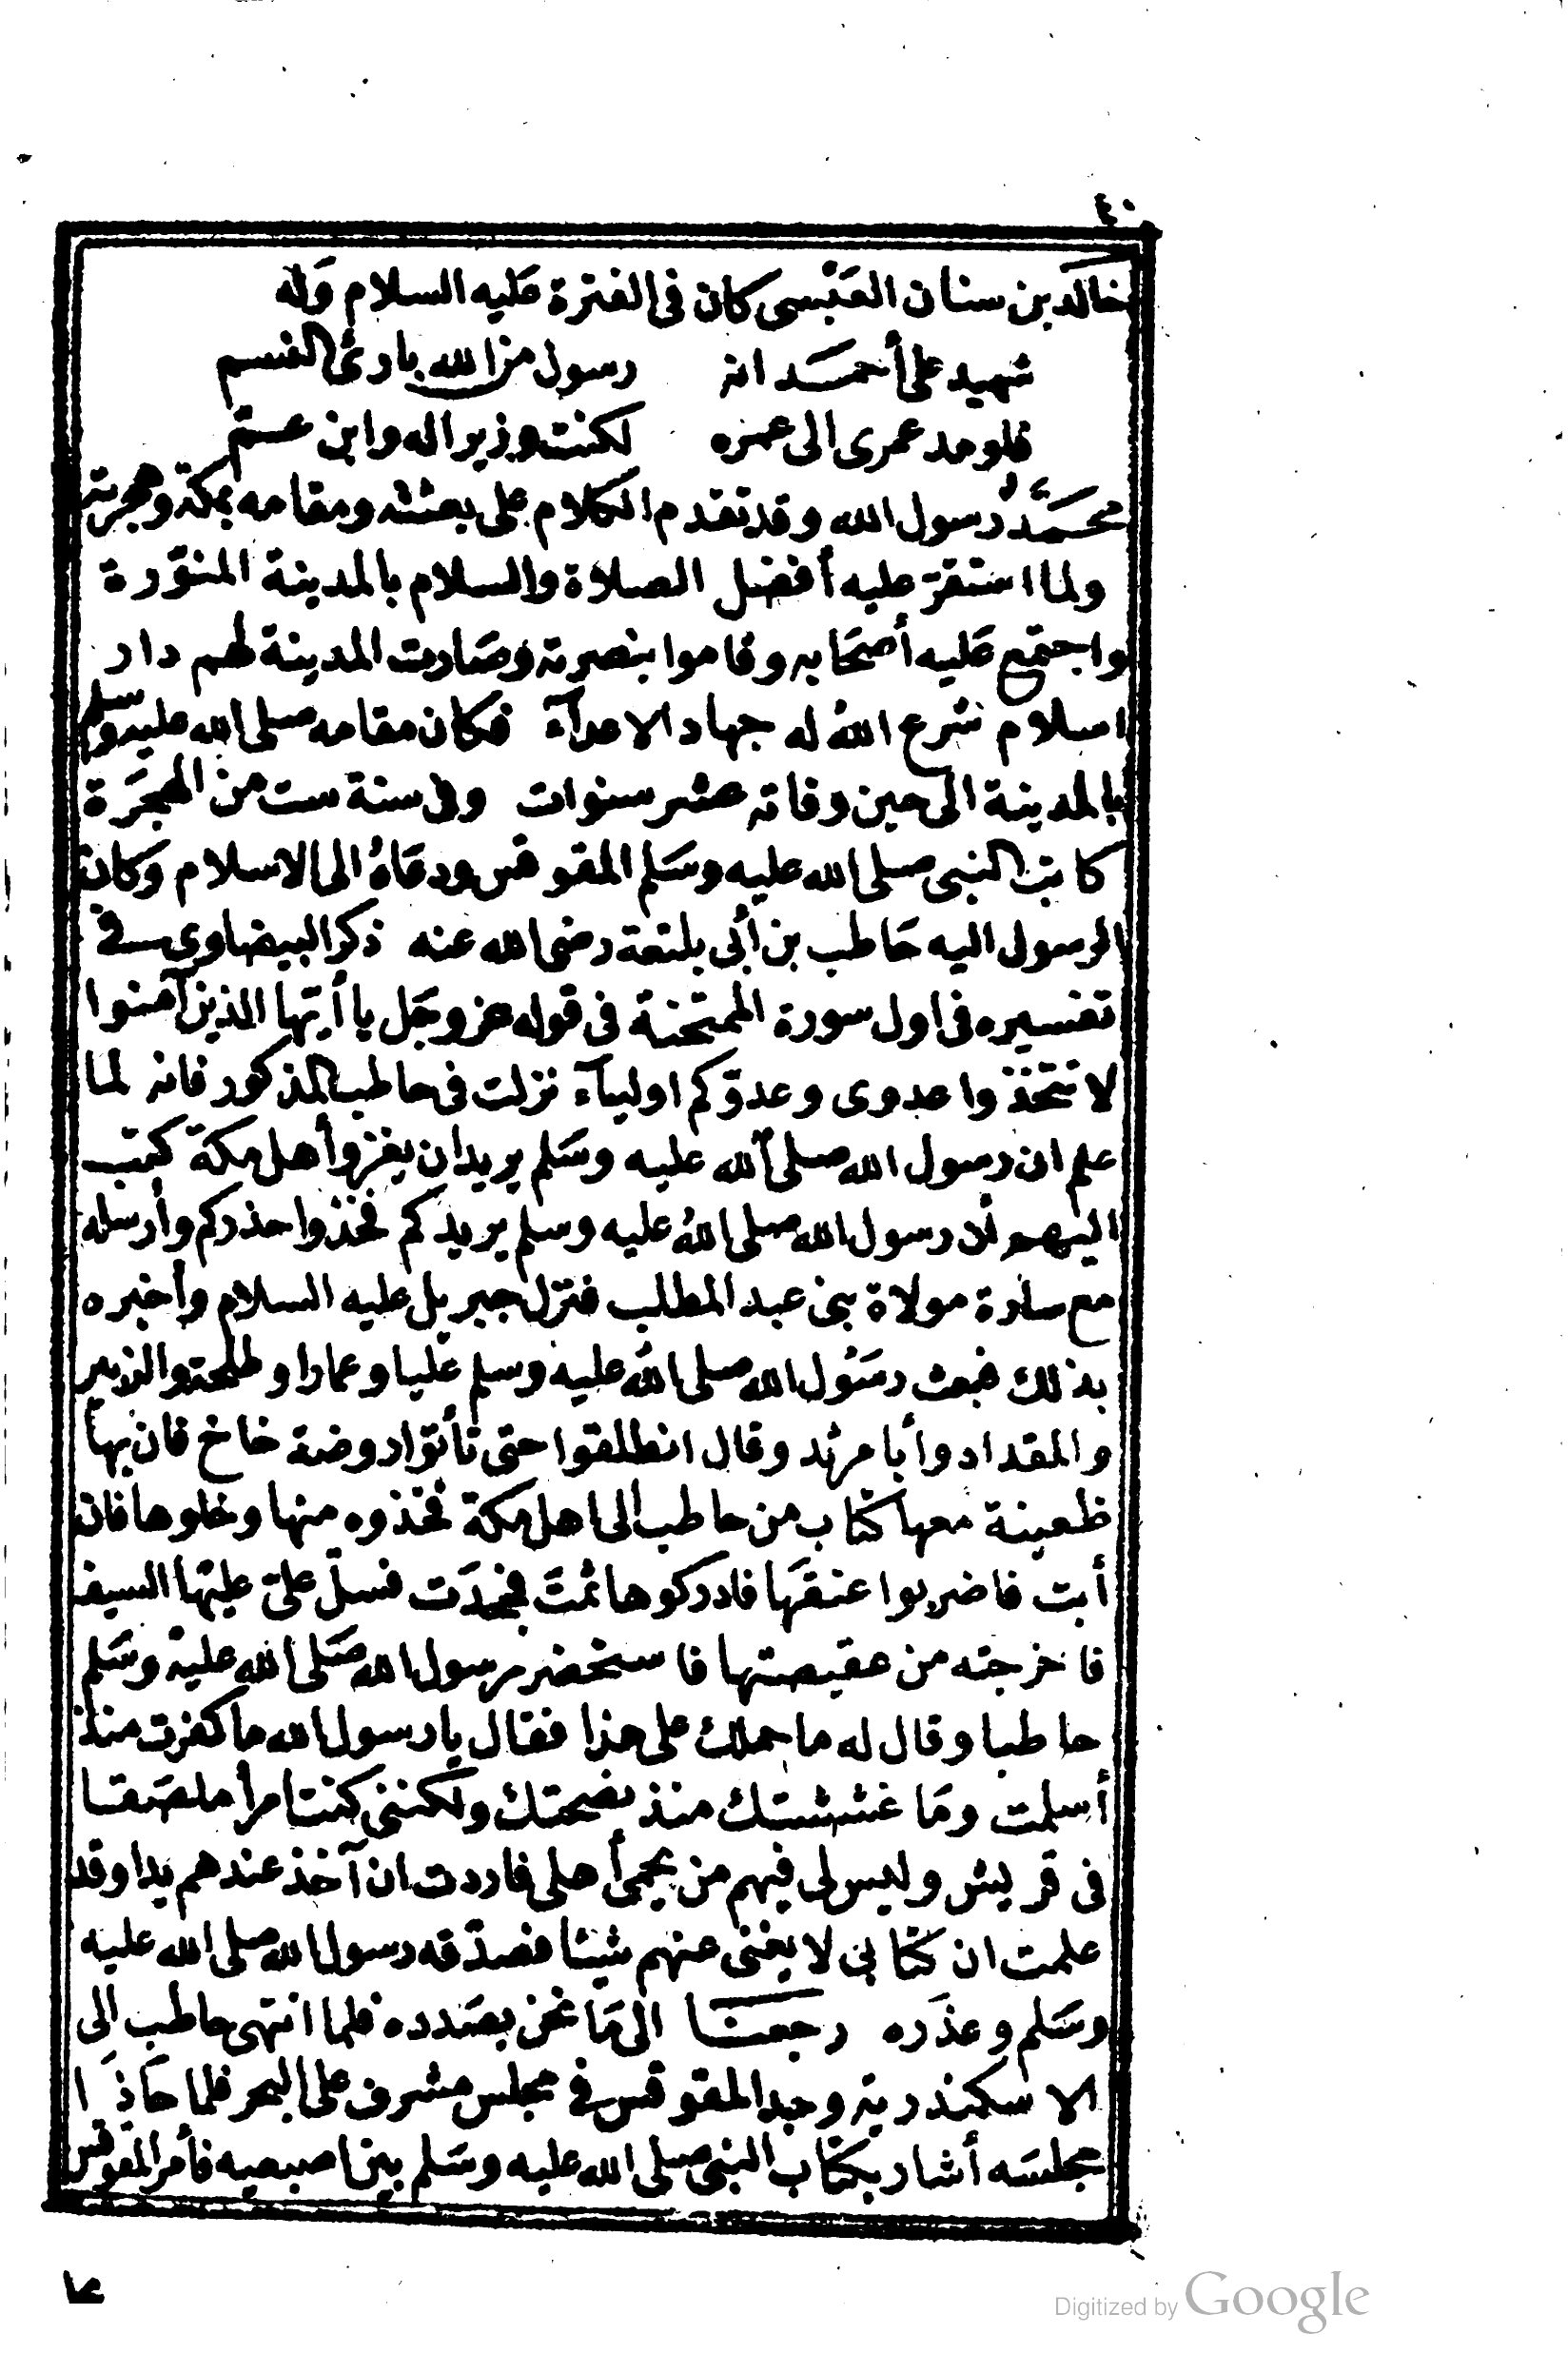 ٤٠
خالد بن سنان العَبْسى كان فى الفترة عَليه السلام وَله
شهيد على أحمَد انه رسول من الله بارئ النسم
فلو مد عمرى الى عمره لكنت وزيرا له وابن عم
محَمَّدٌ رسول الله وقد تقدم الكلام على بعثته ومقامه بمكة وهجرته
ولما استقرّ عليه أفضل الصلاة والسلام بالمدينة المنوّرة
واجتمع عَليه أصحَابه وقاموا بنصرته وصَارت المدينة لهم دار
اسلام شرع اللهُ له جهاد الاعدآء فكان مقامه صلى الله عليه وسلم
بالمدينة الى حين وفاته عشر سنوات وفى سنة ست من الهجَرة
كاتب النبى صلى الله عليه وسَلم المقوقس ودعَاهُ الى الاسلام وَكان
الرسول اليه حَاطب بن أبى بلتعة رضى الله عنه ذكر البيضاوى فى
تفسيره فى اول سورة الممتحنة فى قوله عز وجَل يا أيّها الذين آمنوا
لا تتخذوا عدوى وعدوّكم اوليآء نزلت فى حاطب المذكور فانه لما
علم ان رسول الله صلى الله عليه وسَلم يريد ان يغزو أهل مكة كتب
اليهم ان رسول الله صلى اللهُ عليه وسلم يريدكم فخذوا حذركم وأرسله
مع سارة مولاة بنى عبد المطلب فنزل جبريل عليه السلام وأخبره
بذلك فبعث رسُول الله صلى اللهُ عليه وسلم عَليا وعمارا وطلحة والزبير
والمقداد وأبا مرثد وقال انطلقوا حتى تأتوا روضة خاخ فان بها
ظعينة معها كتاب من حاطب الى اهل مكة فخذوه منها وخلوها فان
أبت فاضربوا عنقهَا فادركوها ثمتَّ فجحدَت فسلّ علىّ عليهَا السيف
فاخرجته من عقيصتها فاستحضر رسول الله صَلى الله عليهْ وسَلم
حاطبا وقال له ما حملك على هذا فقال يا رسول الله ما كفرت منذ
أسلمت ومَا غششتك منذ نصحتك ولكننى كنت امرأ ملصَقا
فى قريش وليس لى فيهم من يحمى أهلى فاردت ان آخذ عندهم يدا وقد
علمت ان كتابى لا يغنى عنهم شيئا فصدّقه رسول الله صلى الله عليه
وسَلم وعذَره رجعنا الى مَا نحن بصَدده فلما انتهى حاطب إلى
الاسكندرية وجد المقوقس فى مجلس مشرف على البحر فلما حَاذَا
مجلسَه أشار بكتاب النبى صلى الله عليه وسَلم بين اصبعيه فأمر المقوقس
Digitized by Google